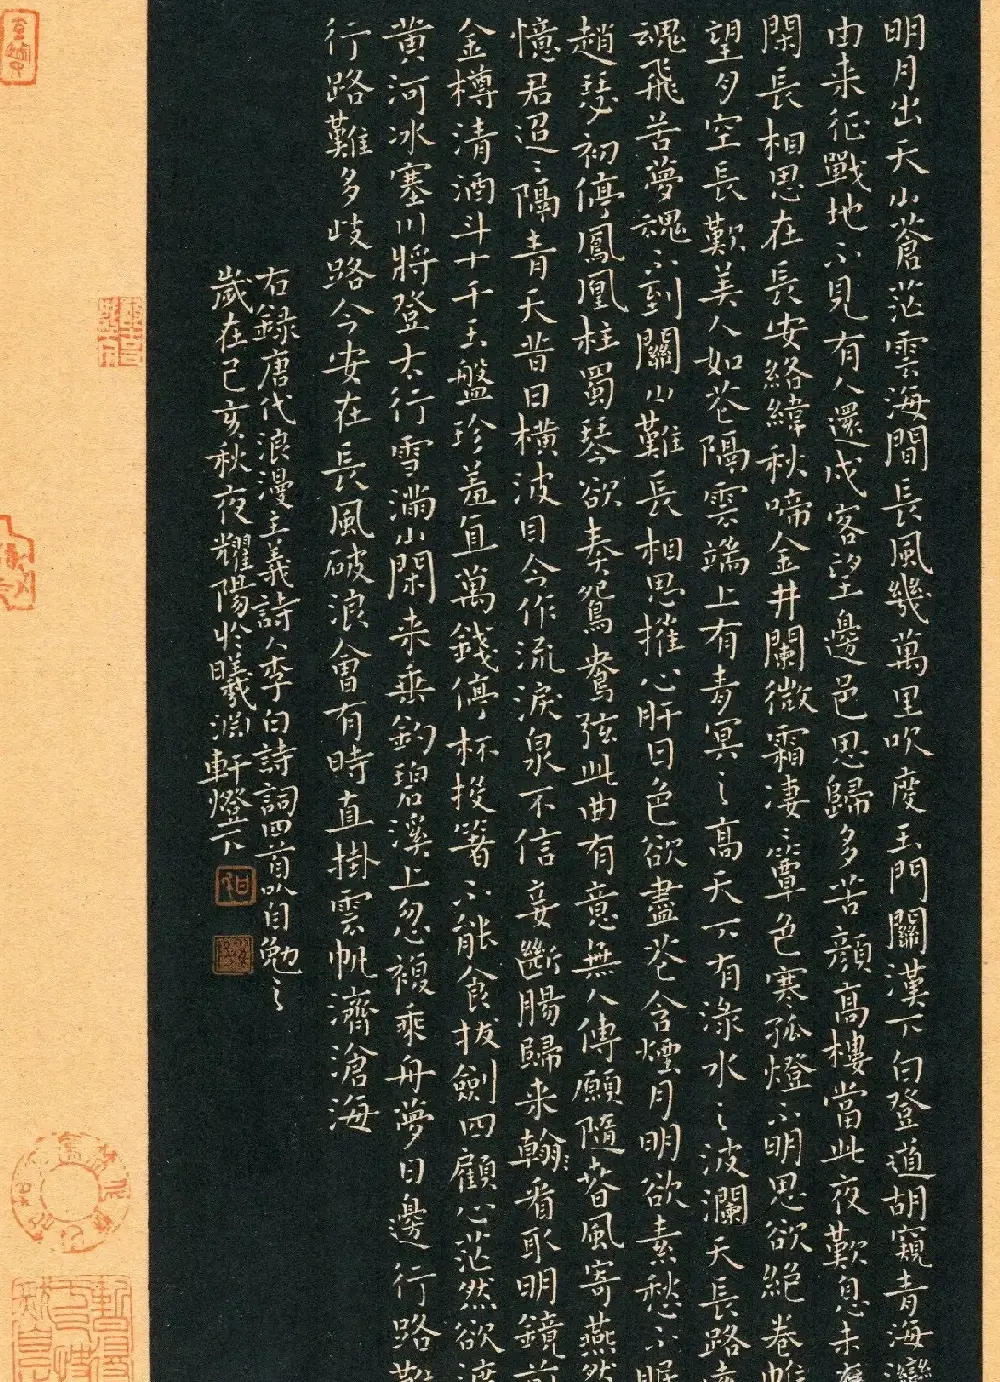 明月出天山蒼茫雲海間長風幾萬里吹度玉門關漢下白登道胡窺青海灣
由来征戰地不見有人還戍客望邊邑思歸多苦顔高樓當此夜歎息未
閑長相思在長安絡緯秋啼金井闌微霜凄〻簟色寒孤燈不明思欲絶卷帷
望月空長歎美人如花隔雲端上有青冥之高天下有淥水之波瀾天長路
魂飛苦夢魂不到關山難長相思摧心肝日色欲盡花含煙月明欲素愁不眠
趙瑟初停鳳凰柱蜀琴欲奏鴛鴦弦此曲有意無人傳願隨春風寄燕然
憶君迢〻隔青天昔日横波目今作流淚泉不信妾斷腸歸来看取明鏡前
金樽清酒斗十千玉盤珍羞直萬錢停杯投箸不能食拔劍四顧心茫然欲渡
黄河冰塞川將登太行雪滿山閑来垂釣碧溪上忽複乘舟夢日邊行路難
行路難多歧路今安在長風破浪會有時直掛雲帆濟滄海
右録唐代浪漫主義詩人李白詩詞四首以自勉之
歲在己亥秋夜耀陽於曦淵軒燈下